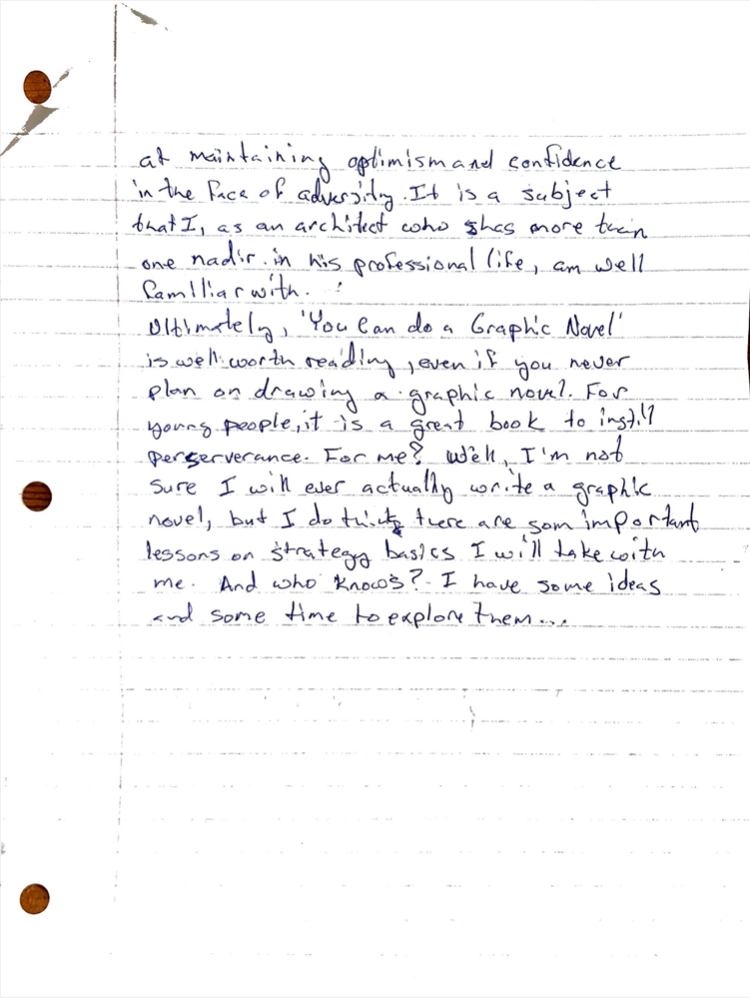 at maintaining optimism and confidence
in the face of adversity. It is a subject
that I, as an architect who has more than
one nadir in his professional life, am well
familiar with.
Ultimately, 'You Can do a Graphic Novel'
is well worth reading, even if you never
plan on drawing a graphic novel. For
young people, it is a great book to instill
perserverance. For me? Well, I'm not
sure I will ever actually write a graphic
novel, but I do think there are som important
lessons on strategy basics I will take with
me. And who knows? I have some ideas
and some time to explore them...